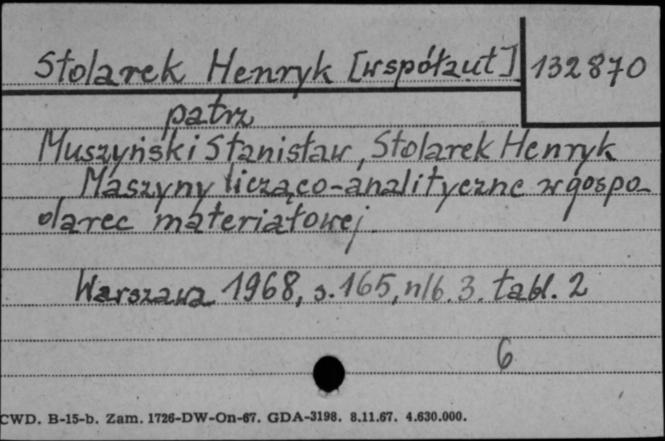 Stolarek Henryk [współaut] 132870
patrz
Muszyński Stanisław, Stolarek Henryk
Maszyny licząco-analityczne w gospo-
darce materiałowej.
Warszawa 1968, s. 165, nlb. 3. tabl. 2
6
CWD. B-15-b. Zam. 1726-DW-On-67. GDA-3198. 8.11.67. 4.630.000.